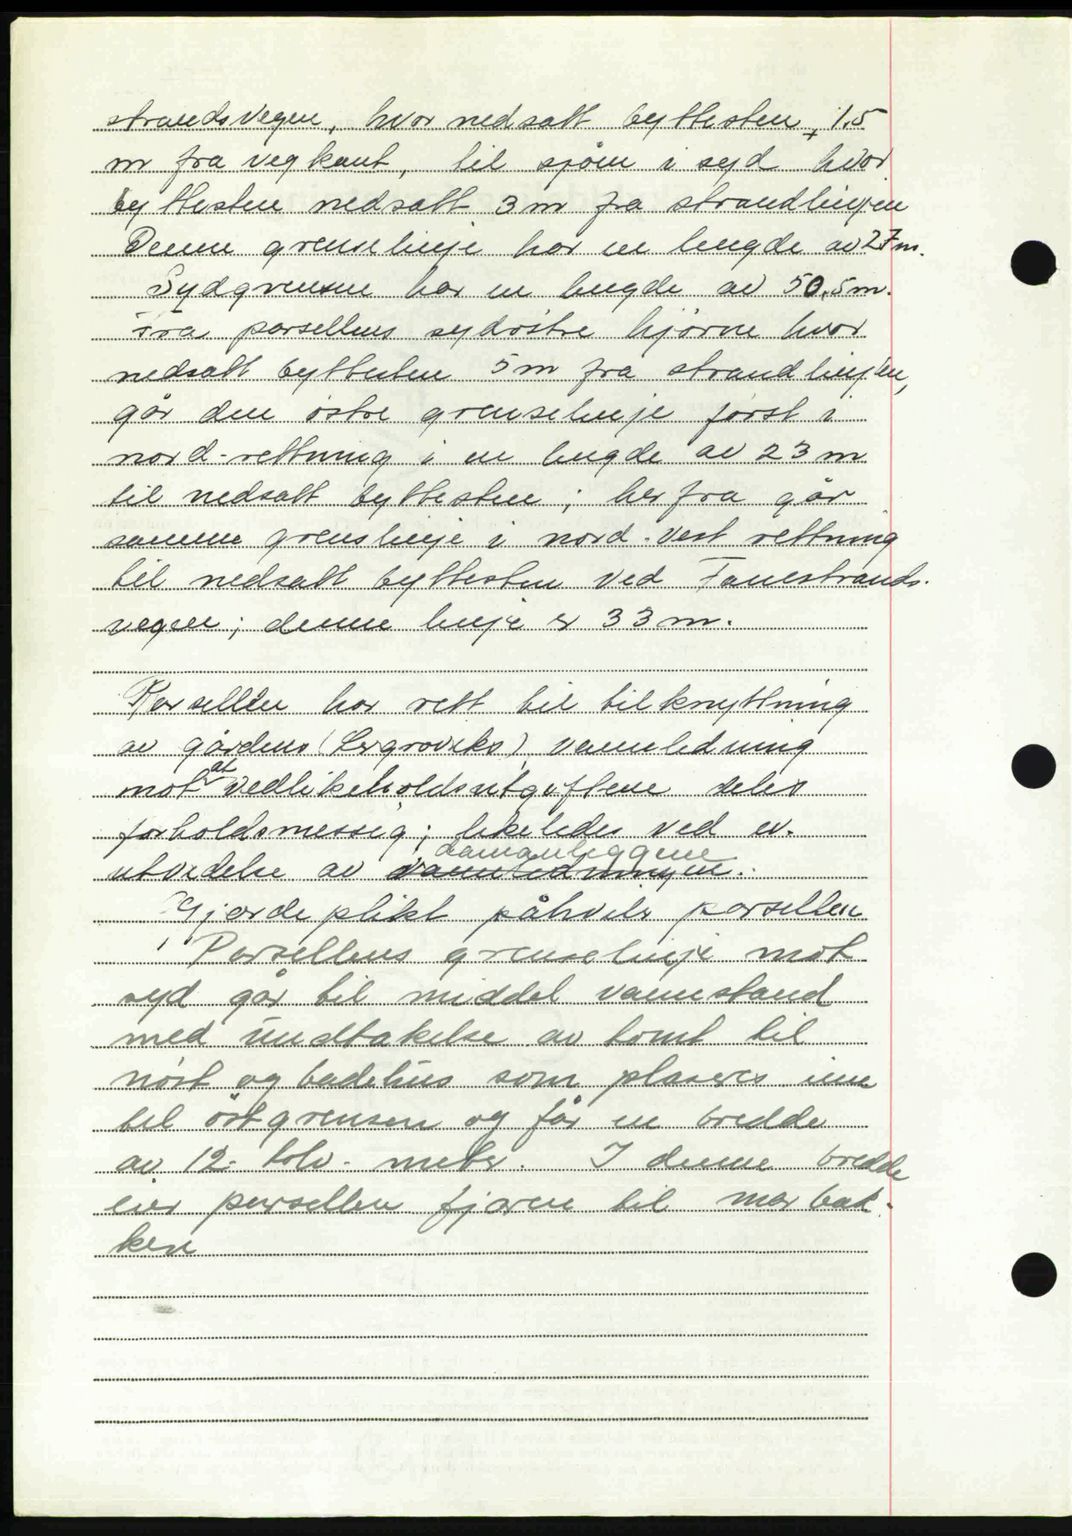 strandsvegen, hvor nedsatt byttesten, 1,5
m fra vegkant, til sjøen i syd hvor
byttesten nedsatt 3 m fra strandlinjen
Denne grenselinje har en lengde av 27 m.
Sydgrensen har en lengde av 50,5 m.
Fra parsellens sydöstre hjörne hvor
nedsatt byttesten 5 m fra strandlinjen,
går den östre grenselinje först i
nord-rettning i en lengde av 23 m
til nedsatt byttesten; herfra går
samme grenslinje i nord-vest rettning
til nedsatt byttesten ved Fanestrands-
vegen; denne linje er 33 m.
Parsellen har rett til tilknyttning
av gårdens (Lergroviks) vannledning
mot at vedlikeholdsutgiftene deles
forholdsmessig; likeledes ved ev.
utvidelse av vannledningen damanleggene.
Gjerdeplikt påhviler parsellen
Parsellens grenselinje mot
syd går til middel vannstand
med undtakelse av tomt til
nöst og badehus som plaseres inn
til östgrensen og får en bredde
av 12 - tolv - meter. I denne bredde
eier parsellen fjæren til marbak-
ken